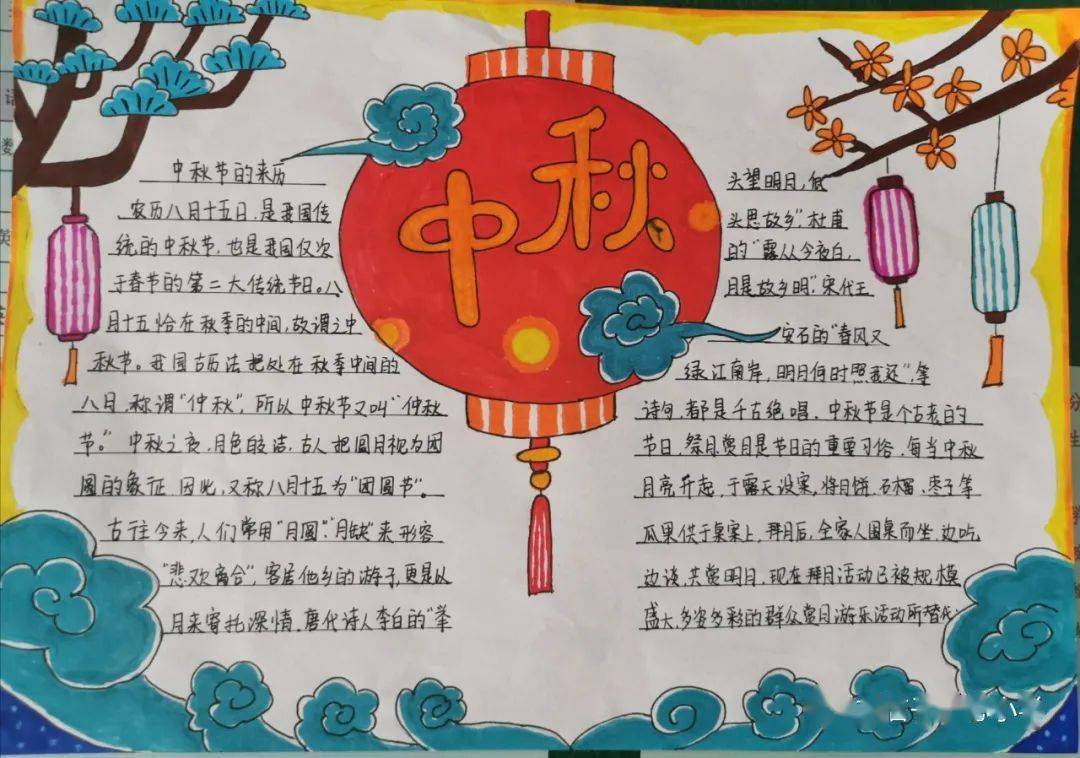 中秋
中秋节的来历
农历八月十五日,是我国传
统的中秋节,也是我国仅次
于春节的第二大传统节日。八
月十五恰在秋季的中间,故谓之中
秋节。我国古历法把处在秋季中间的
八月,称谓“仲秋”,所以中秋节又叫“仲秋
节。”中秋之夜,月色皎洁,古人把圆月视为团
圆的象征,因此,又称八月十五为“团圆节”。
古往今来,人们常用“月圆”“月缺”来形容
“悲欢离合”,客居他乡的游子,更是以
月来寄托深情,唐代诗人李白的“举
头望明月,低
头思故乡”杜甫
的“露从今夜白,
月是故乡明”,宋代王
安石的“春风又
绿江南岸,明月何时照我还”,等
诗句,都是千古绝唱、中秋节是个古老的
节日,祭月赏月是节日的重要习俗,每当中秋
月亮升起,于露天设案,将月饼,石榴、枣子等
瓜果供于桌案上,拜月后,全家人围桌而坐,边吃
边谈,共赏明月,现在拜月活动已被规模
盛大,多姿多彩的群众赏月游乐活动所替代